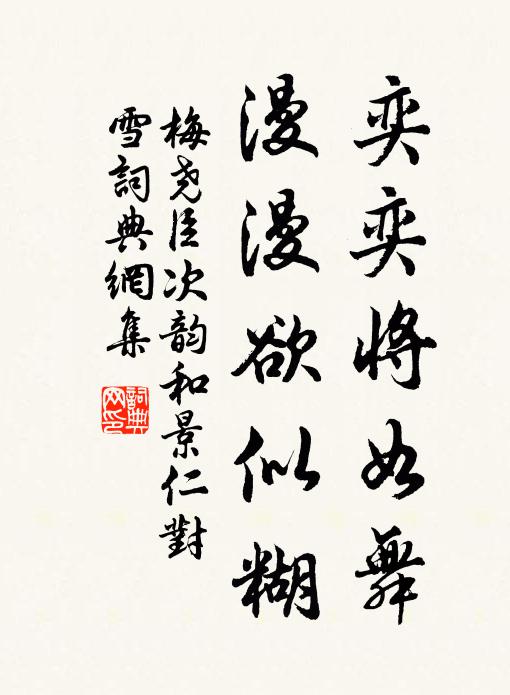 奕奕將如舞
漫漫欲似糊
梅尧臣次韵和景仁對
雪詞典網集
詞典
网印